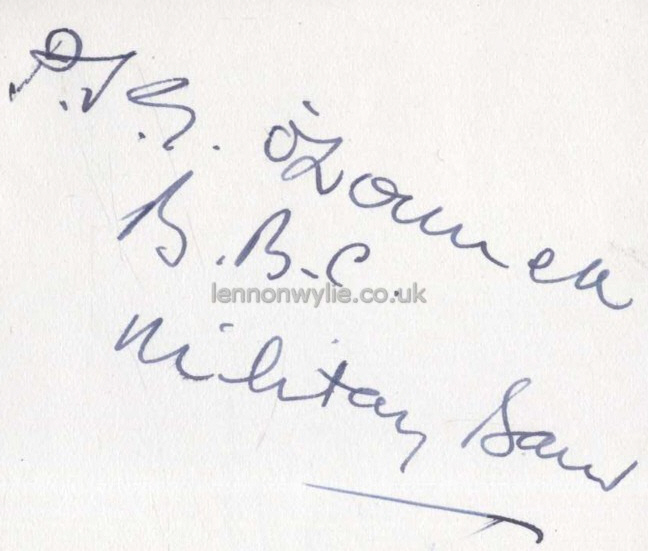 P.S.G. O'Donnell
B.B.C.
lennonwylie.co.uk
Military Band